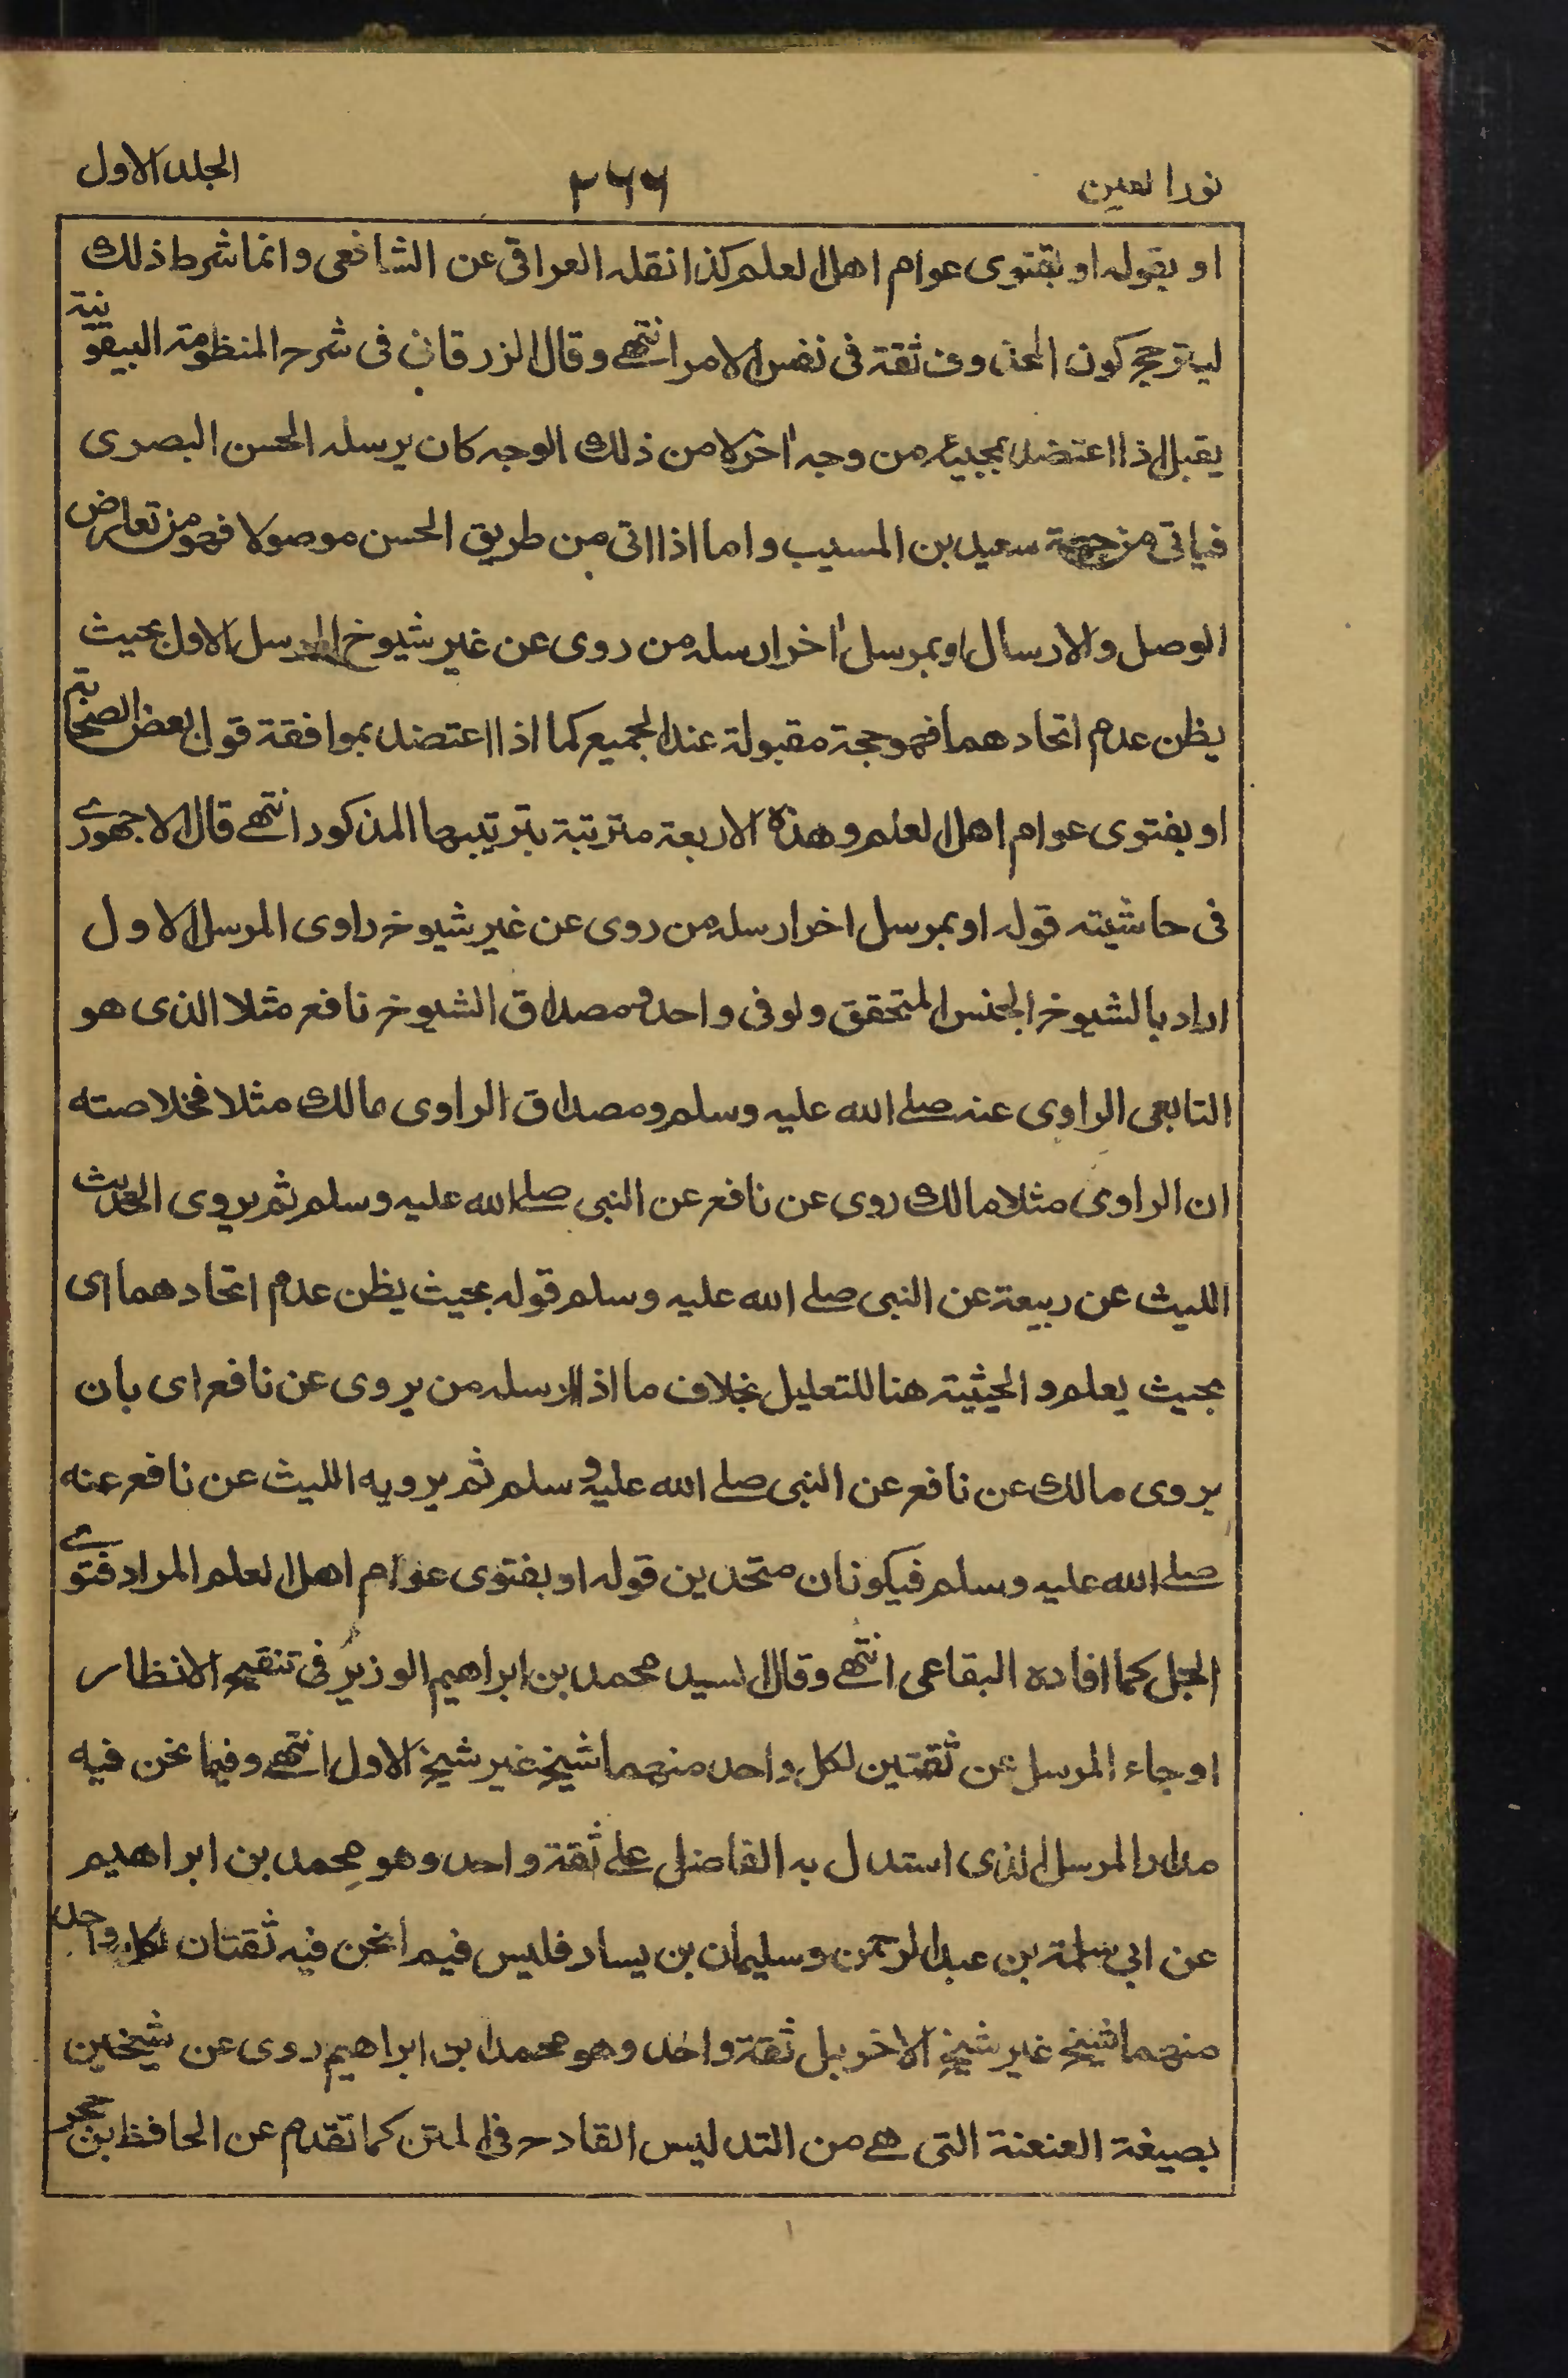 نور العين ٢٦٦ الجلد الاول
او بقوله او بفتوى عوام اهل العلم كذا نقله العراقى عن الشافعى وانما شرط ذلك
ليترجح كون المحذوف ثقة فى نفس الامر انتهے وقال الزرقانى فى شرح المنظومة البيقونية
يقبل اذا اعتضد بمجيئه من وجه اخر لا من ذلك الوجه كان يرسله الحسن البصرى
فياتى من جهة سعيد بن المسيب واما اذا اتى من طريق الحسن موصولا فهو من تعارض
الوصل والارسال او بمرسل اخر ارسله من روى عن غير شيوخ المرسل الاول بحيث
يظن عدم اتحادهما فهو حجة مقبولة عند الجميع كما اذا اعتضد بموافقة قول بعض الصحابة
او بفتوى عوام اهل العلم وهذه الاربعة مترتبة بترتيبها المذكور انتهے قال الاجهورے
فى حاشيته قوله او بمرسل اخر ارسله من روى عن غير شيوخ راوى المرسل الاول
اراد بالشيوخ الجنس المتحقق ولو فى واحد ومصداق الشيوخ نافع مثلا الذى هو
التابعى الراوى عنه صلے الله عليه وسلم ومصداق الراوى مالك مثلا فخلاصته
ان الراوى مثلا مالك روى عن نافع عن النبى صلے الله عليه وسلم ثم يروى الحديث
الليث عن ربيعة عن النبى صلے الله عليه وسلم قوله بحيث يظن عدم اتحادهما اى
بحيث يعلم والحيثية هنا للتعليل بخلاف ما اذا ارسله من يروى عن نافع اى بان
يروى مالك عن نافع عن النبى صلے الله عليه وسلم ثم يرويه الليث عن نافع عنه
صلے الله عليه وسلم فيكونان متحدين قوله او بفتوى عوام اهل العلم المراد فتوے
الجل كما افاده البقاعى انتهے وقال السيد محمد بن ابراهيم الوزير فى تنقيح الانظار
او جاء المرسل عن ثقتين لكل واحد منهما شيخ غير شيخ الاول انتهے وفيما نحن فيه
مدار المرسل الذى استدل به الفاضل علے ثقة واحد وهو محمد بن ابراهيم
عن ابى سلمة بن عبد الرحمن وسليمان بن يسار فليس فيما نحن فيه ثقتان لكل واحد
منهما شيخ غير شيخ الاخر بل ثقة واحد وهو محمد ابن ابراهيم روى عن شيخين
بصيغة العنعنة التى هے من التدليس القادح فى المتن كما تقدم عن الحافظ بن حجر